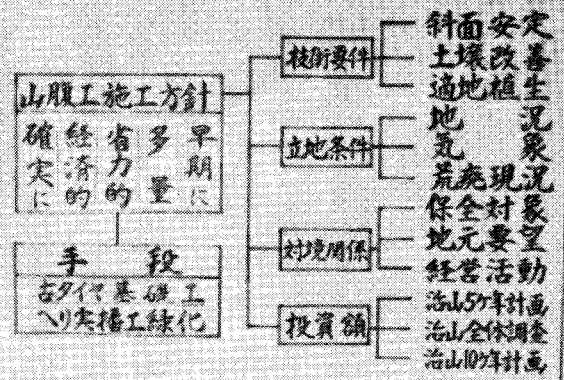 山腹工施工方針
早期に
多量
省力的
経済的
確実に
手段
古タイヤ基礎工
ヘリ実播工緑化
技術要件
斜面安定
土壌改善
適地植生
立地条件
地況
気象
荒廃現況
対境関係
保全対象
地元要望
経営活動
投資額
治山5ケ年計画
治山全体調査
治山10ケ年計画